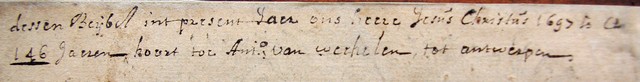 dessen Beijbel int present Jaer ons heere Jesus Christus 1697 is
146 Jaeren, hoort toe Anto: van wechelen, tot antwerpen